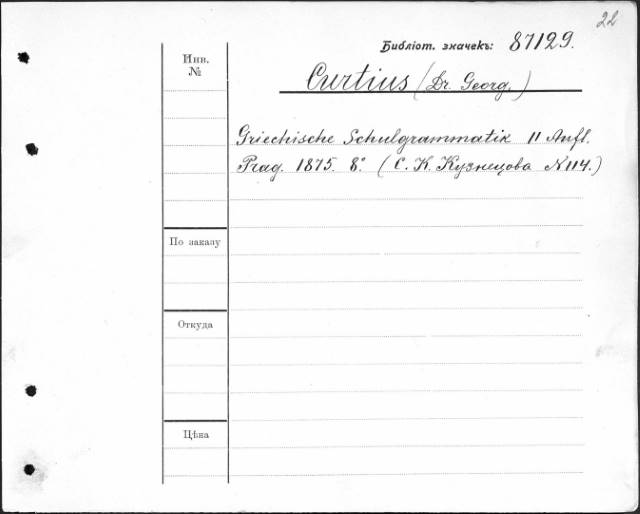 22
Библіот. значекъ: 87129.
Инв.
№
Curtius (Dr. Georg.)
Griechische Schulgrammatik 11 Aufl.
Prag. 1875. 8°. (С. К. Кузнецова N 114.)
По заказу
Откуда
Цѣна